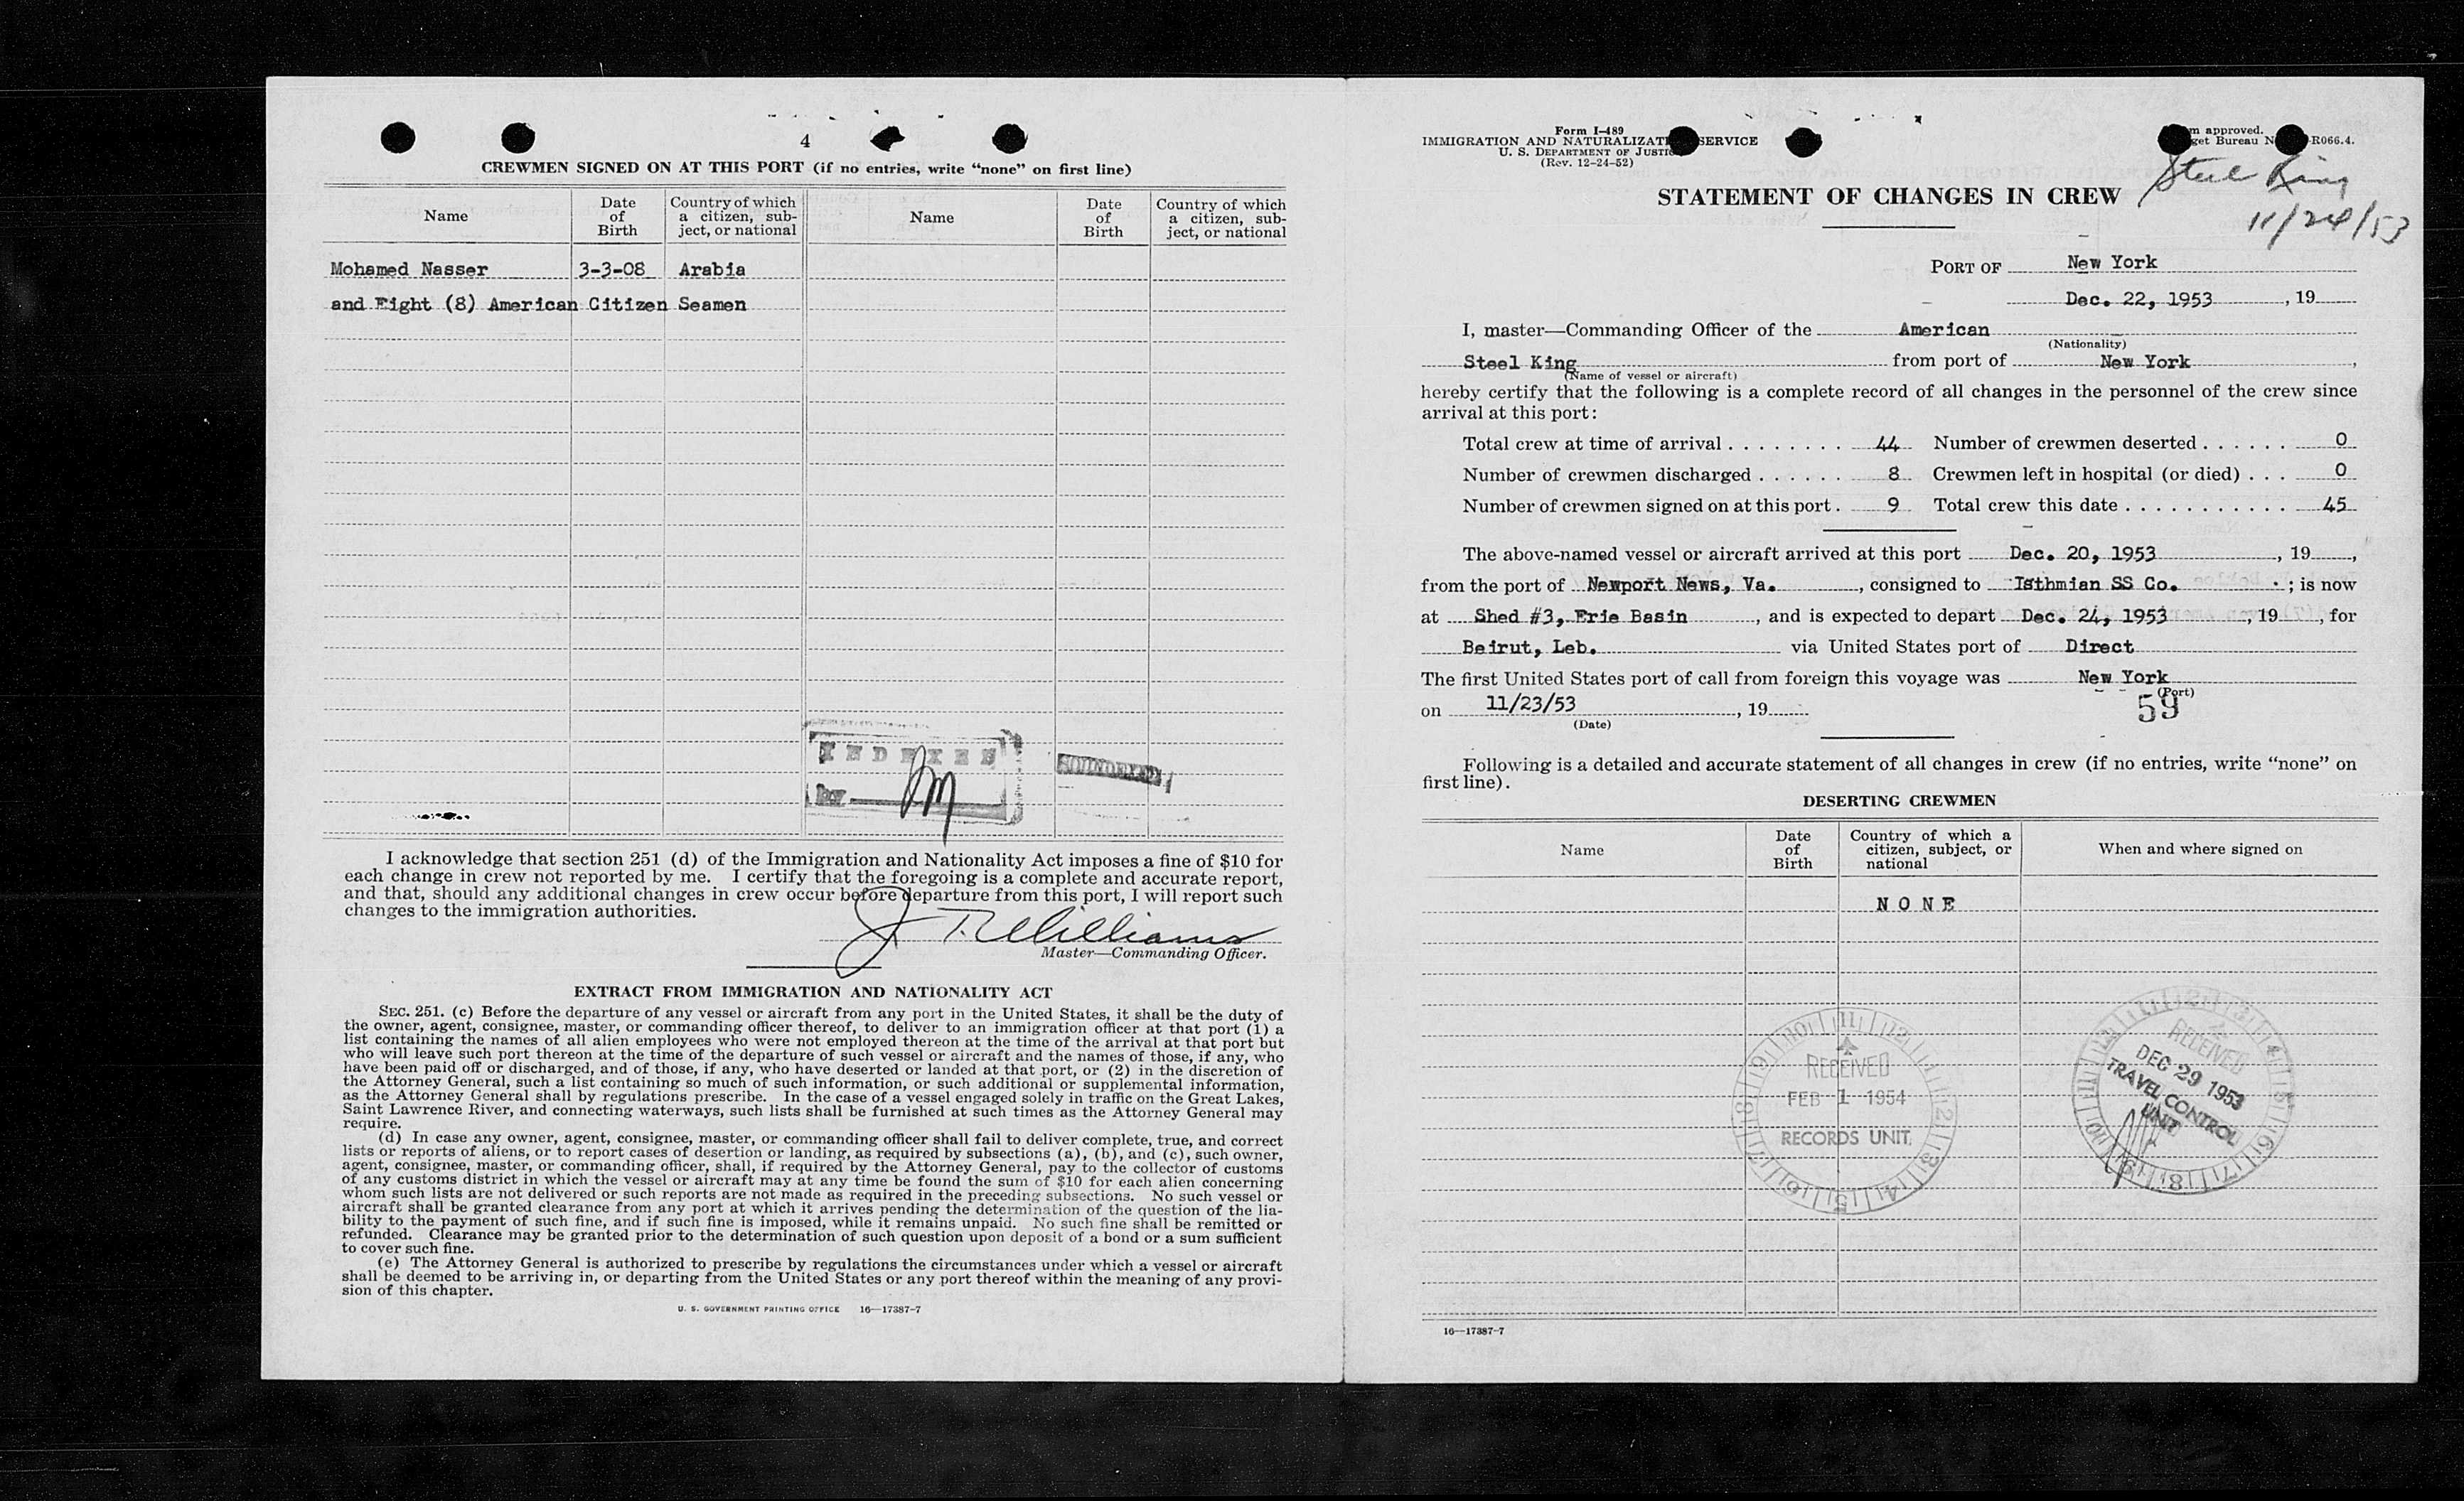 4
CREWMEN SIGNED ON AT THIS PORT (if no entries, write “none” on first line)
Name
Date of Birth
Country of which a citizen, sub-ject, or national
Name
Date of Birth
Country of which a citizen, sub-ject, or national
Mohamed Nasser 3-3-08 Arabia
and Eight (8) American Citizen Seamen
INDEXED
SOUNDEXED
I acknowledge that section 251 (d) of the Immigration and Nationality Act imposes a fine of $10 for
each change in crew not reported by me. I certify that the foregoing is a complete and accurate report,
and that, should any additional changes in crew occur before departure from this port, I will report such
changes to the immigration authorities.
J T. Williams
Master—Commanding Officer.
EXTRACT FROM IMMIGRATION AND NATIONALITY ACT
SEC. 251. (c) Before the departure of any vessel or aircraft from any port in the United States, it shall be the duty of
the owner, agent, consignee, master, or commanding officer thereof, to deliver to an immigration officer at that port (1) a
list containing the names of all alien employees who were not employed thereon at the time of the arrival at that port but
who will leave such port thereon at the time of the departure of such vessel or aircraft and the names of those, if any, who
have been paid off or discharged, and of those, if any, who have deserted or landed at that port, or (2) in the discretion of
the Attorney General, such a list containing so much of such information, or such additional or supplemental information,
as the Attorney General shall by regulations prescribe. In the case of a vessel engaged solely in traffic on the Great Lakes,
Saint Lawrence River, and connecting waterways, such lists shall be furnished at such times as the Attorney General may
require.
(d) In case any owner, agent, consignee, master, or commanding officer shall fail to deliver complete, true, and correct
lists or reports of aliens, or to report cases of desertion or landing, as required by subsections (a), (b), and (c), such owner,
agent, consignee, master, or commanding officer, shall, if required by the Attorney General, pay to the collector of customs
of any customs district in which the vessel or aircraft may at any time be found the sum of $10 for each alien concerning
whom such lists are not delivered or such reports are not made as required in the preceding subsections. No such vessel or
aircraft shall be granted clearance from any port at which it arrives pending the determination of the question of the lia-
bility to the payment of such fine, and if such fine is imposed, while it remains unpaid. No such fine shall be remitted or
refunded. Clearance may be granted prior to the determination of such question upon deposit of a bond or a sum sufficient
to cover such fine.
(e) The Attorney General is authorized to prescribe by regulations the circumstances under which a vessel or aircraft
shall be deemed to be arriving in, or departing from the United States or any port thereof within the meaning of any provi-
sion of this chapter.
U. S. GOVERNMENT PRINTING OFFICE 16—17387-7
Form I-489
IMMIGRATION AND NATURALIZATI SERVICE
U. S. DEPARTMENT OF JUSTIC
(Rev. 12-24-52)
m approved.
get Bureau N R066.4.
Steel King
11/24/53
STATEMENT OF CHANGES IN CREW
PORT OF New York
Dec. 22, 1953, 19
I, master—Commanding Officer of the American
(Nationality)
Steel King from port of New York,
(Name of vessel or aircraft)
hereby certify that the following is a complete record of all changes in the personnel of the crew since
arrival at this port:
Total crew at time of arrival . . . . . . . . 44 Number of crewmen deserted . . . . . . 0
Number of crewmen discharged . . . . . . 8 Crewmen left in hospital (or died) . . . 0
Number of crewmen signed on at this port . 9 Total crew this date . . . . . . . . . . . 45
The above-named vessel or aircraft arrived at this port Dec. 20, 1953, 19,
from the port of Newport News, Va., consigned to Isthmian SS Co. ; is now
at Shed #3, Erie Basin, and is expected to depart Dec. 24, 1953, 19, for
Beirut, Leb. via United States port of Direct
The first United States port of call from foreign this voyage was New York
(Port)
on 11/23/53, 19
(Date)
59
Following is a detailed and accurate statement of all changes in crew (if no entries, write “none” on
first line).
DESERTING CREWMEN
Name
Date of Birth
Country of which a citizen, subject, or national
When and where signed on
NONE
RECEIVED
FEB 1 1954
RECORDS UNIT
RECEIVED
DEC 29 1953
TRAVEL CONTROL
UNIT
16—17387-7